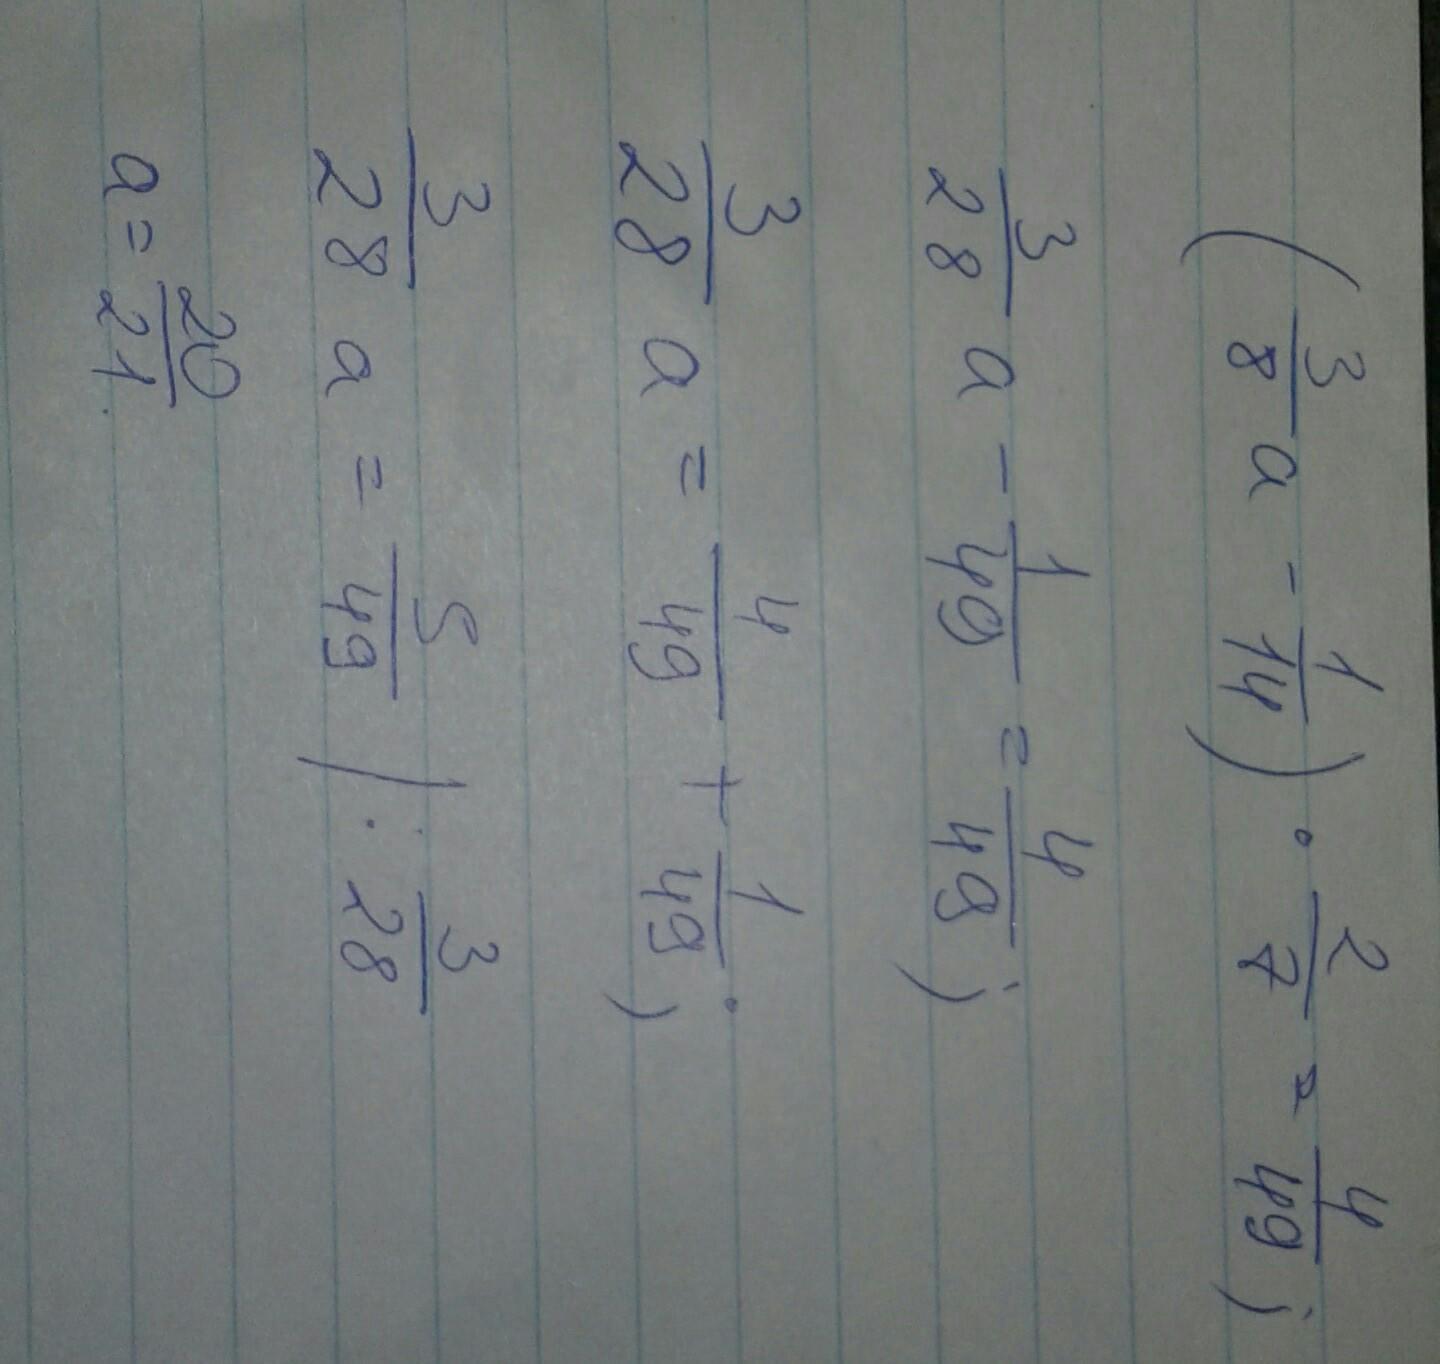 (3/8 a - 1/14) · 2/7 = 4/49;
3/28 a - 1/49 = 4/49;
3/28 a = 4/49 + 1/49;
3/28 a = 5/49 / : 3/28
a = 20/21.